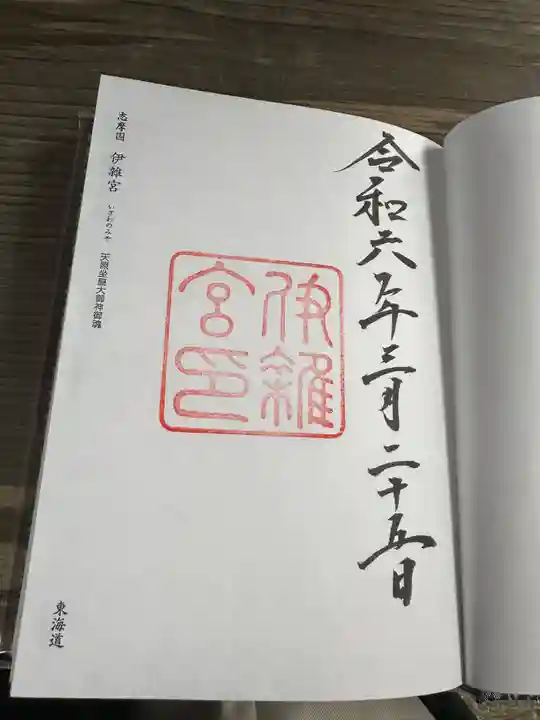 令和六年三月二十五日
伊雑
宮印
志摩国 伊雜宮 いざわのみや 天照坐皇大御神御魂
東海道